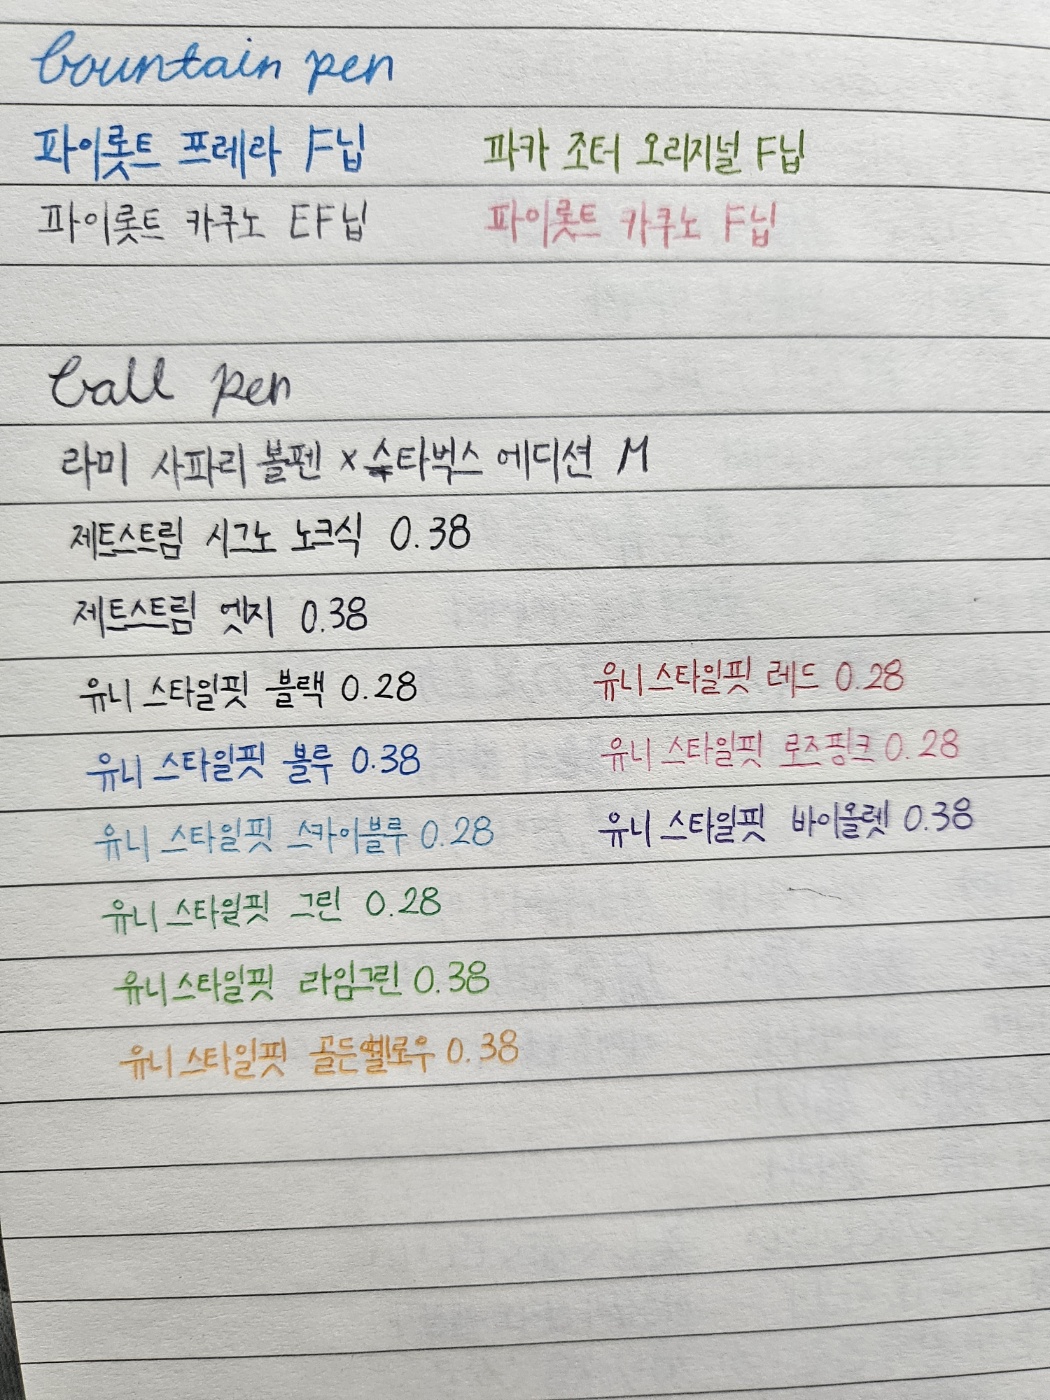 bountain pen
파이롯트 프레라 F닙 파카 조터 오리지널 F닙
파이롯트 카쿠노 EF닙 파이롯트 카쿠노 F닙
ball pen
라미 사파리 볼펜 x 스타벅스 에디션 M
제트스트림 시그노 노크식 0.38
제트스트림 엣지 0.38
유니 스타일핏 블랙 0.28 유니 스타일핏 레드 0.28
유니 스타일핏 블루 0.38 유니 스타일핏 로즈핑크 0.28
유니 스타일핏 스카이블루 0.28 유니 스타일핏 바이올렛 0.38
유니 스타일핏 그린 0.28
유니 스타일핏 라임그린 0.38
유니 스타일핏 골든옐로우 0.38